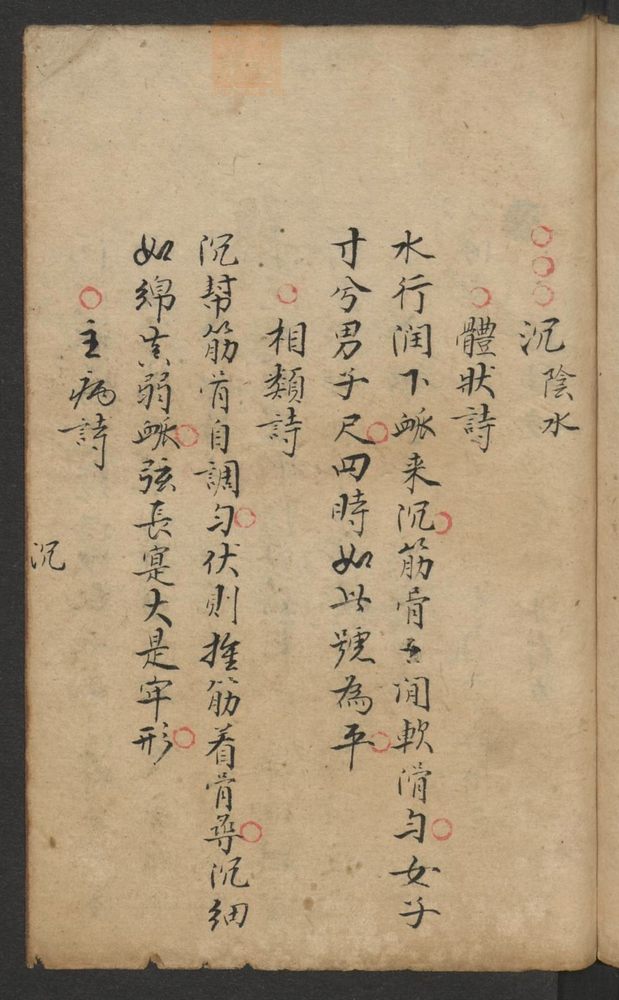 沉 陰水
體狀詩
水行潤下脈来沉筋骨之間軟滑匀女子
寸兮男子尺四時如此號為平
相類詩
沉幇筋骨自調匀伏則推筋着骨尋沉細
如綿真弱脈弦長寔大是牢形
主病詩
沉